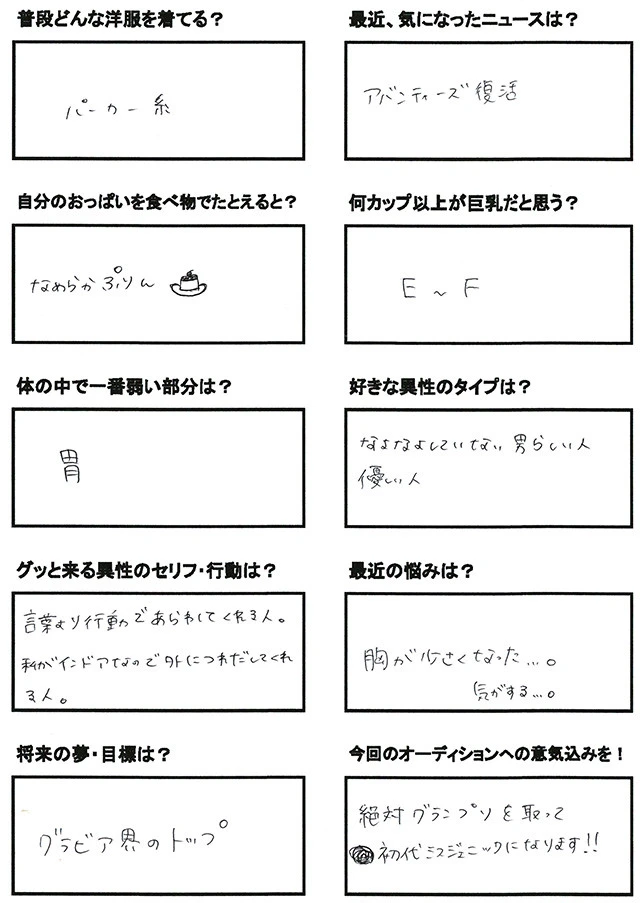 普段どんな洋服を着てる？
パーカー系
最近、気になったニュースは？
アバンティーズ復活
自分のおっぱいを食べ物でたとえると？
なめらかぷりん
何カップ以上が巨乳だと思う？
E～F
体の中で一番弱い部分は？
胃
好きな異性のタイプは？
なよなよしていない男らしい人
優しい人
グッと来る異性のセリフ・行動は？
言葉より行動であらわしてくれる人。
私がインドアなので外につれだしてくれ
る人。
最近の悩みは？
胸が小さくなった…。
気がする…。
将来の夢・目標は？
グラビア界のトップ
今回のオーディションへの意気込みを！
絶対グランプリを取って
初代ミスジェニックになります!!